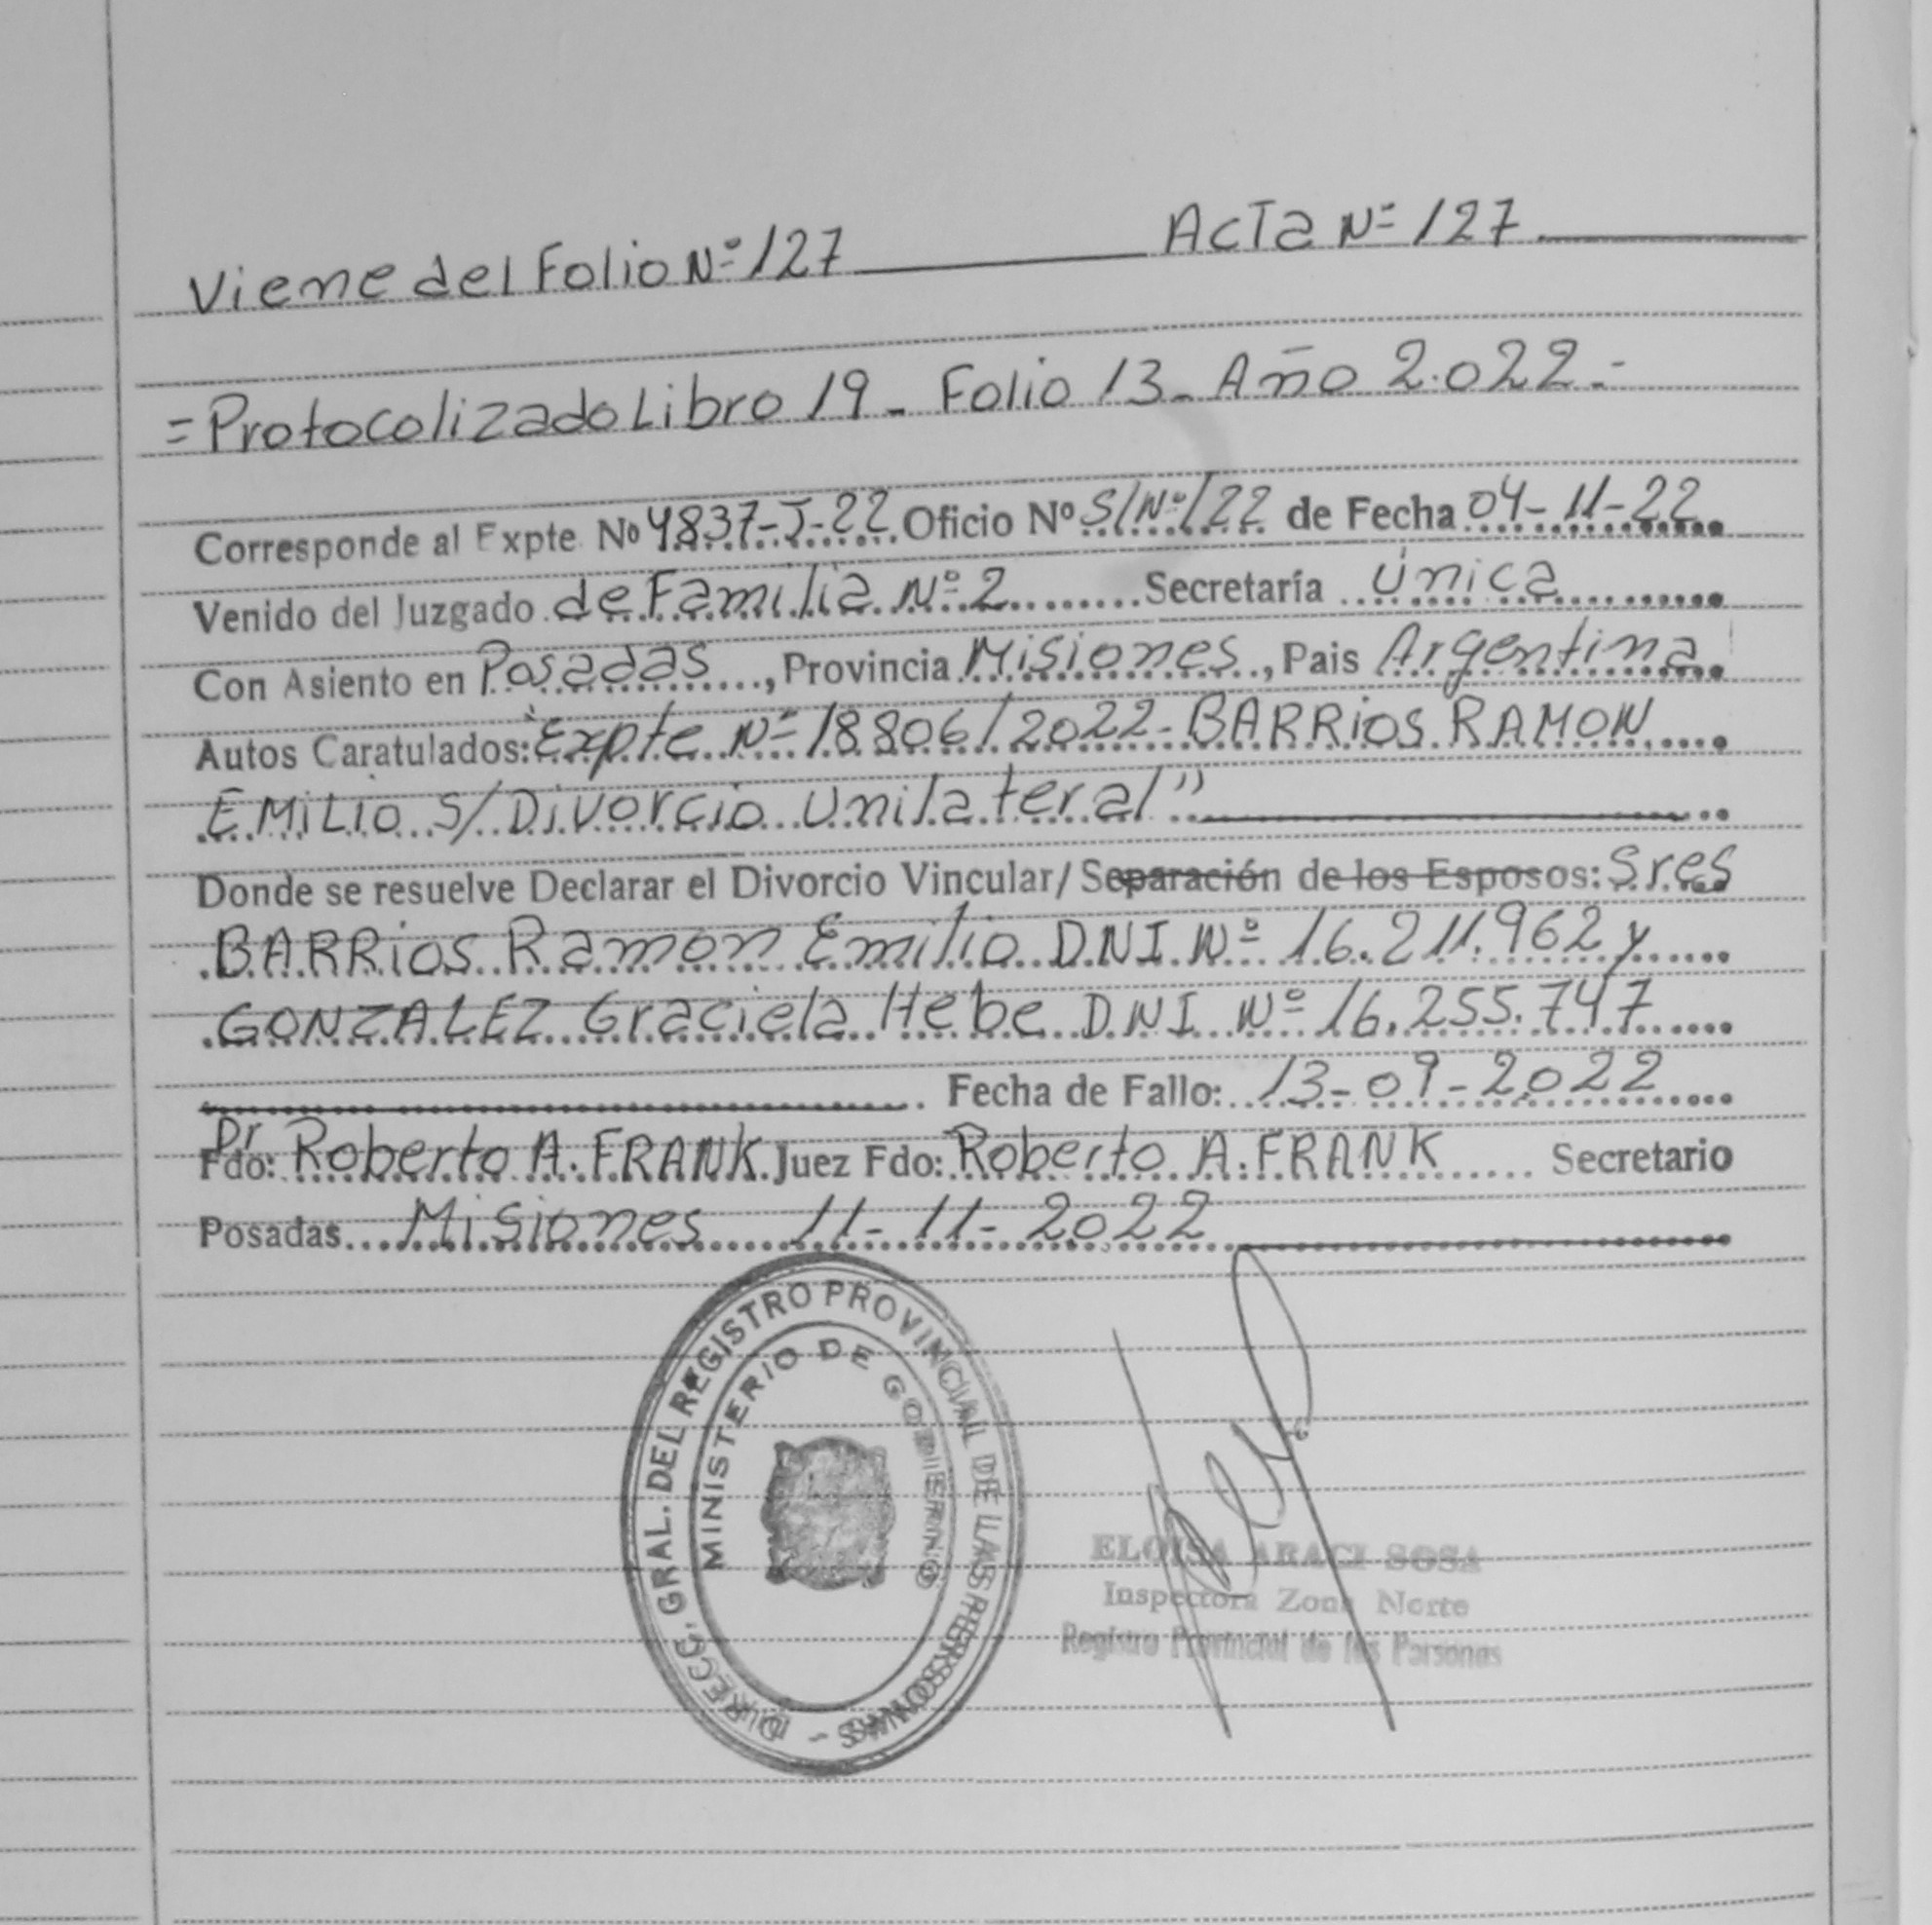 Viene del Folio Nº 127 Acta Nº 127
= Protocolizado Libro 19 - Folio 13 - Año 2.022 -
Corresponde al Expte. Nº 4837-J-22 Oficio Nº S/Nº/22 de Fecha 04-11-22
Venido del Juzgado de Familia Nº 2 Secretaría Única
Con Asiento en Posadas, Provincia Misiones, Pais Argentina
Autos Caratulados: "Expte Nº 18806/2022 - BARRIOS RAMON
EMILIO S/ Divorcio Unilateral"
Donde se resuelve Declarar el Divorcio Vincular/ Separación de los Esposos: Sres
BARRIOS Ramon Emilio D.N.I. Nº 16.211.962 y
GONZALEZ Graciela Hebe D.N.I. Nº 16.255.747
Fecha de Fallo: 13-09-2022
Dr
Fdo: Roberto A. FRANK Juez Fdo: Roberto A. FRANK Secretario
Posadas Misiones 11-11-2022
DIRECC. GRAL. DEL REGISTRO PROVINCIAL DE LAS PERSONAS -
MINISTERIO DE GOBIERNO
ELOISA ARACI SOSA
Inspectora Zona Norte
Registro Provincial de las Personas